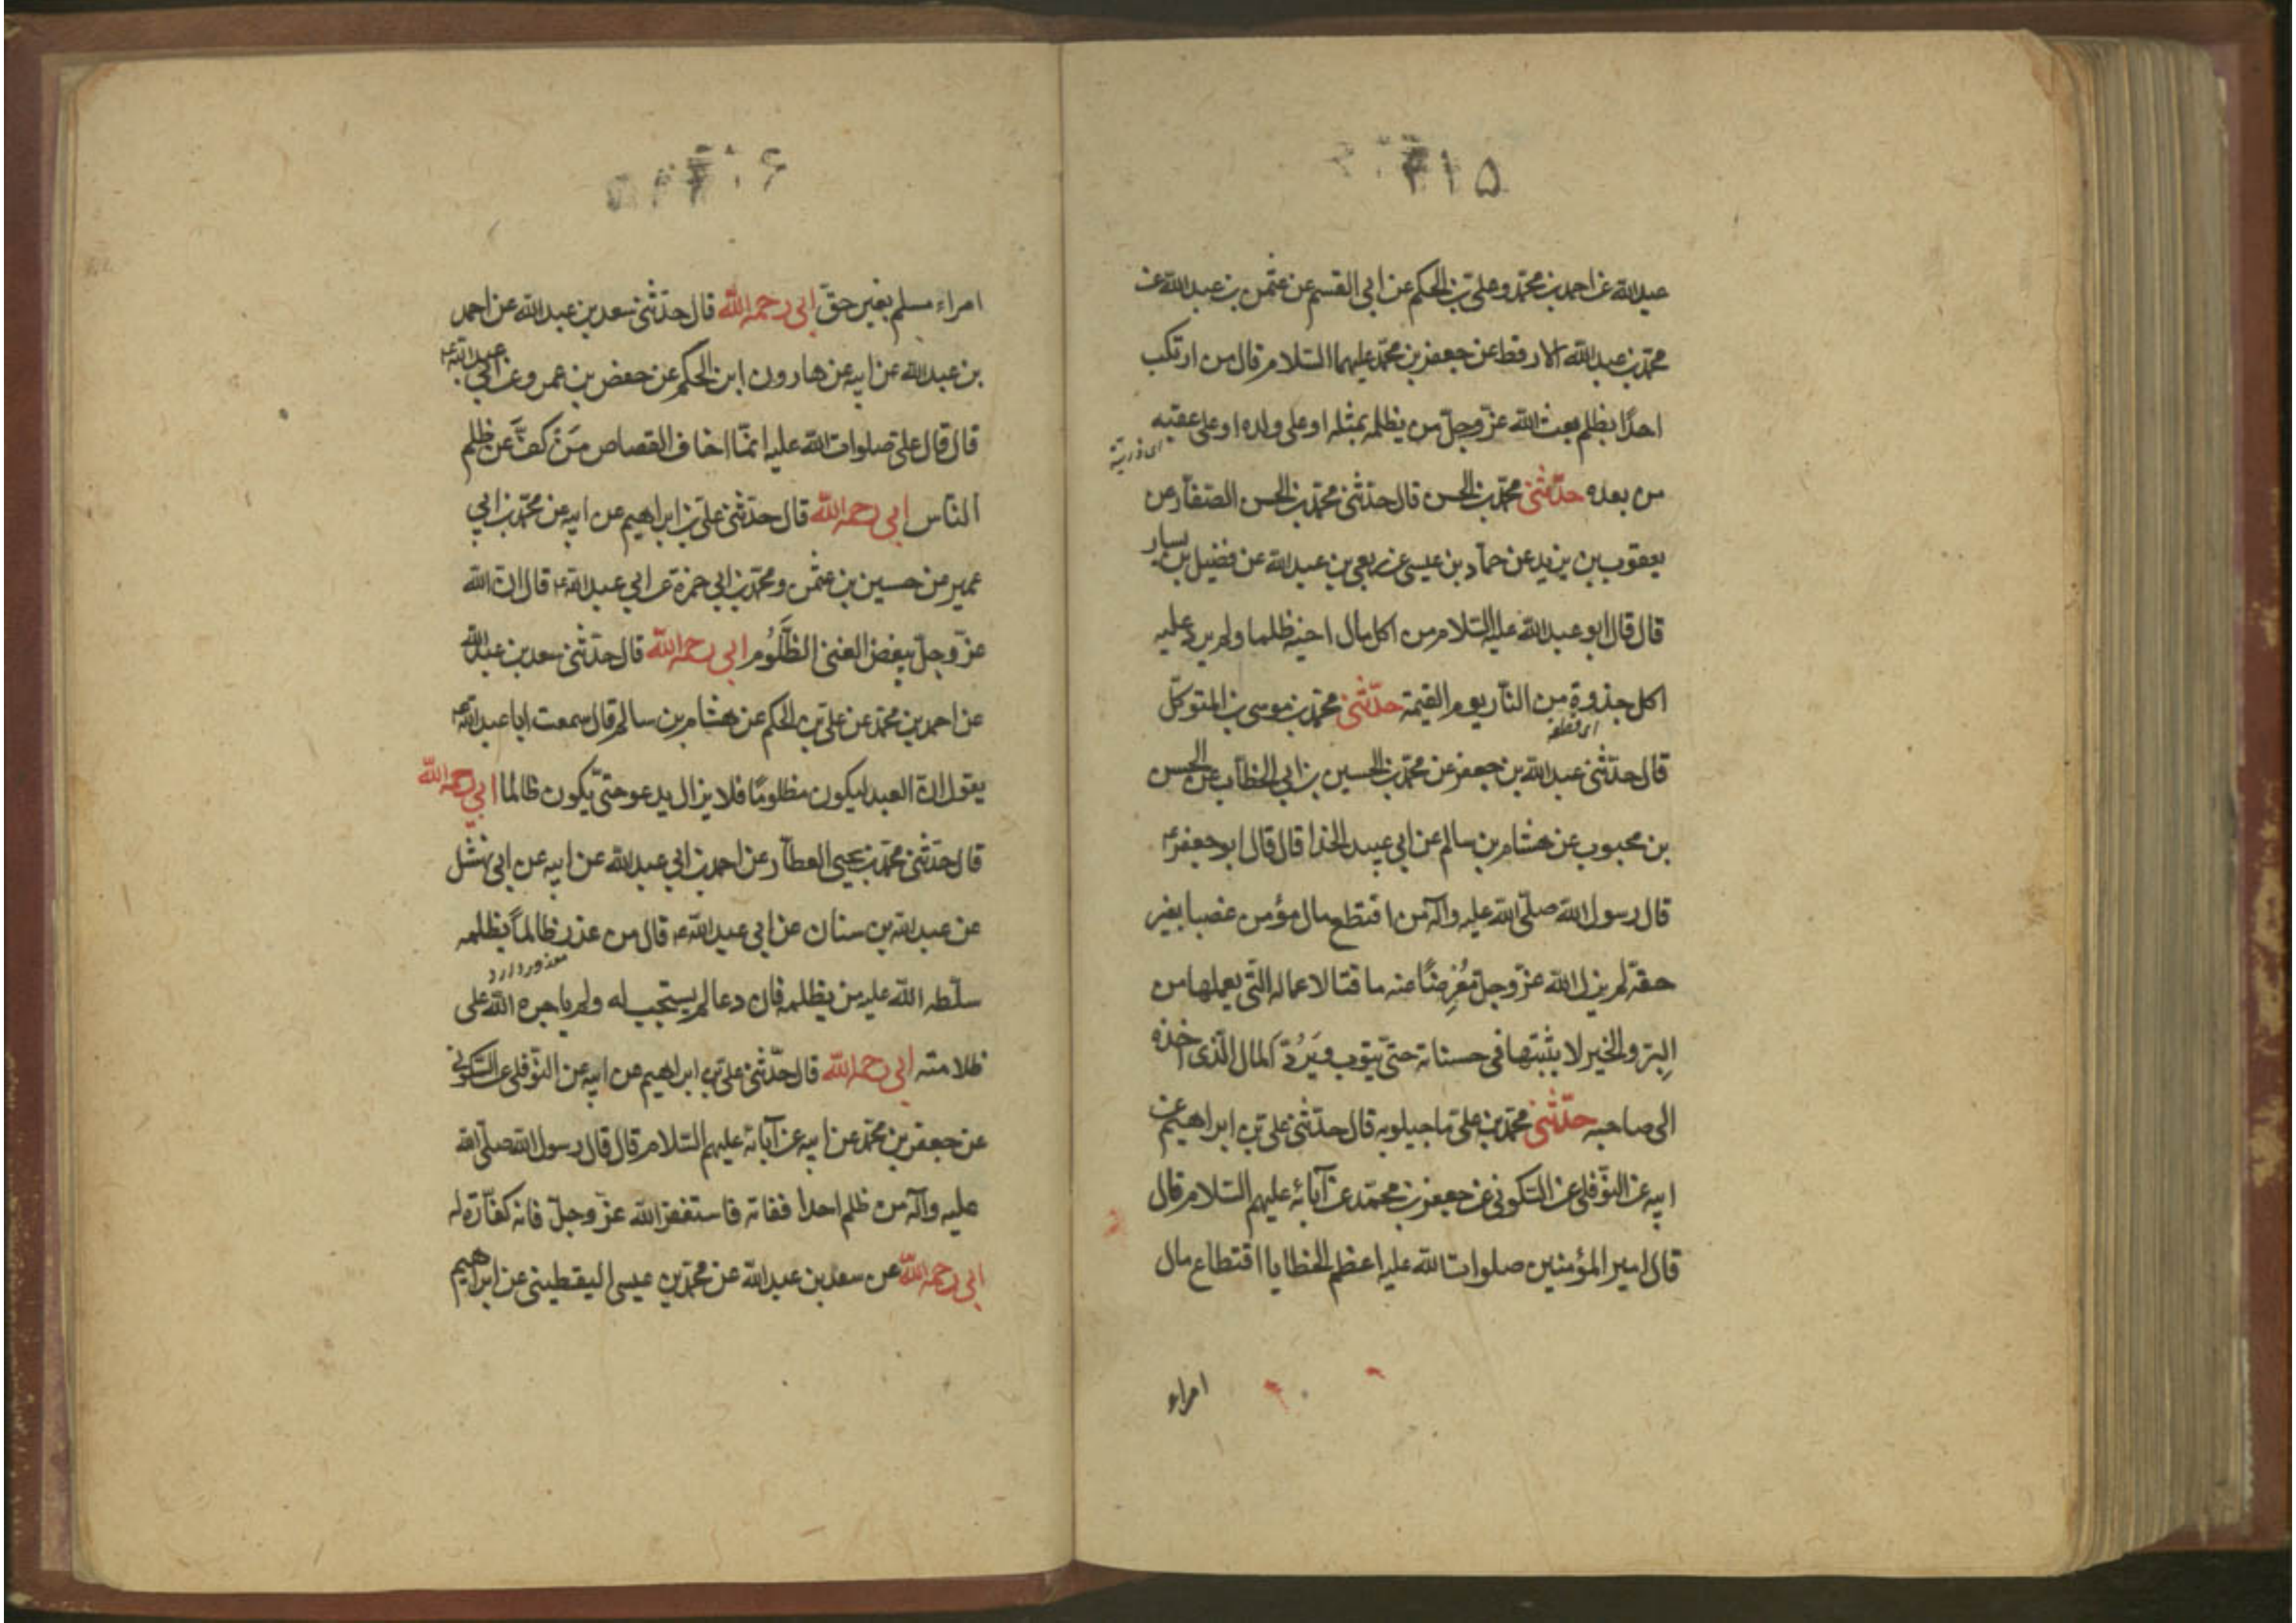 ۵۱۴
عبدالله عن احمد بن محمّد وعلى بن الحكم عن ابى القسم عن عثمن بن عبدالله عن
محمّد بن عبدالله الارقط عن جعفر بن محمّد عليهما السّلام قال من ارتكب
احدًا بظلم بعث الله عزّ وجلّ من يظلمه بمثله او على ولده او على عقبه
اى ذريته
من بعده حدّثنى محمّد بن الحسن قال حدّثنى محمّد بن الحسن الصّفّار عن
يعقوب بن يزيد عن حمّاد بن عيسى عن ربعى بن عبدالله عن فضيل بن يسار
قال قال ابو عبدالله عليه السّلام من اكل مال اخيه ظلما ولم يرد عليه
اكل جذوة من النّار يوم القيمة حدّثنى محمّد بن موسى بن المتوكّل
اى قطعه
قال حدّثنى عبدالله بن جعفر عن محمّد بن الحسين بن ابى الخطّاب عن الحسن
بن محبوب عن هشام بن سالم عن ابى عبيد الخذا قال قال ابو جعفر ع
قال رسول الله صلّى الله عليه وآله من اقتطع مال مؤمن غصبا بغير
حقّه لم يزل الله عزّ وجلّ مُعْرِضًا عنه ماقتا لاعماله الّتى يعملها من
البِرّ والخير لا يثبتها فى حسناته حتّى يتوب ويَرُدّ المال الّذى اخذه
الى صاحبه حدّثنى محمّد بن على ماجيلويه قال حدّثنى على بن ابراهيم عن
ابيه عن النّوفلى عن السّكونى عن جعفر بن محمّد عن آبائه عليهم السّلام قال
قال امير المؤمنين صلوات الله عليه اعظم الخطايا اقتطاع مال
امراء
امراء مسلم بغير حقّ ابى رحمه الله قال حدّثنى سعد بن عبدالله عن احمد
بن عبدالله عن ابيه عن هارون ابن الحكم عن حفص بن عمرو عن ابى عبدالله ع
قال قال على صلوات الله عليه انمّا اخاف القصاص مَنْ كفَّ عن ظلم
النّاس ابى رحمه الله قال حدّثنى على بن ابراهيم عن ابيه عن محمّد بن ابى
عمير عن حسين بن عثمن ومحمّد بن ابى حمزة عن ابى عبدالله ع قال انّ الله
عزّ وجلّ يبغض الغنى الظَّلُوم ابى رحمه الله قال حدّثنى سعد بن عبدالله
عن احمد بن محمّد عن على بن الحكم عن هشام بن سالم قال سمعت ابا عبدالله ع
يقول انّ العبد ليكون مظلومًا فلا يزال يدعو حتّى يكون ظالما ابى رحمه الله
قال حدّثنى محمّد بن يحيى العطّار عن احمد بن ابى عبدالله عن ابيه عن ابى نهشل
عن عبدالله بن سنان عن ابى عبدالله ع قال من عذر ظالماً بظلمه
معذور دارد
سلّطه الله عليه من يظلمه فان دعا لم يستجب له ولم ياجره الله على
ظلامته ابى رحمه الله قال حدّثنى على بن ابراهيم عن ابيه عن النّوفلى عن السّكونى
عن جعفر بن محمّد عن ابيه عن آبائه عليهم السّلام قال قال رسول الله صلّى الله
عليه وآله من ظلم احدا ففاته فاستغفر الله عزّ وجلّ فانه كفّارة له
ابى رحمه الله عن سعد بن عبدالله عن محمّد بن عيسى اليقطينى عن ابراهيم